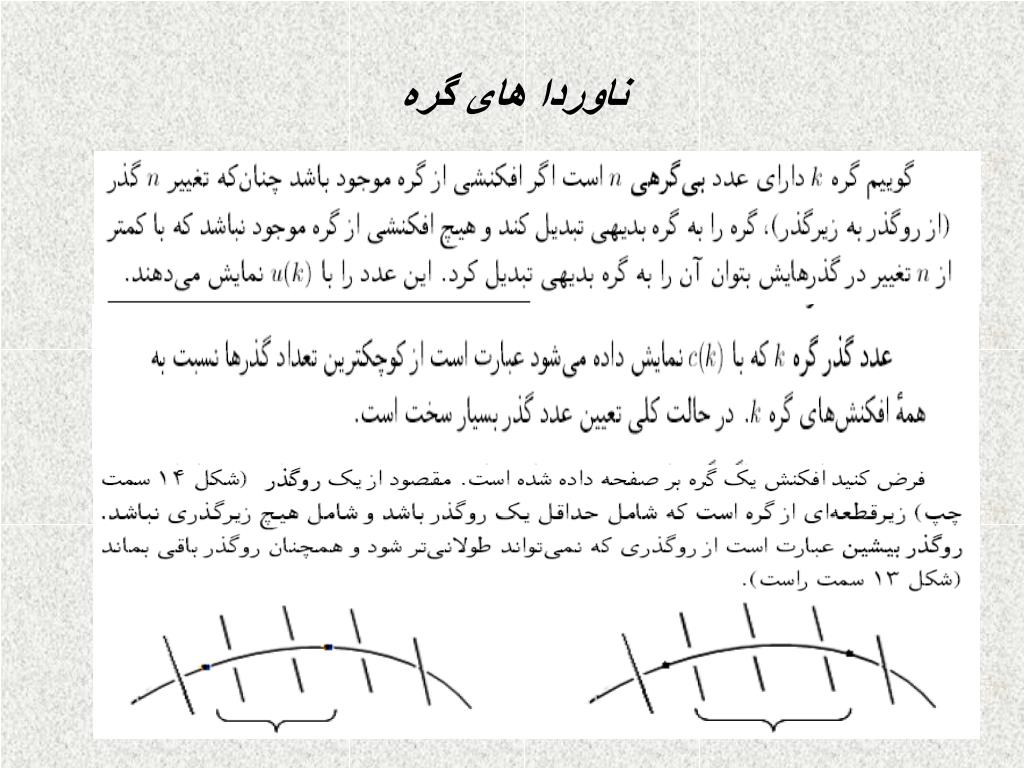 ناوردا های گره
گوییم گره k دارای عدد بی‌گرهی n است اگر افکنشی از گره موجود باشد چنان‌که تغییر n گذر
(از روگذر به زیرگذر)، گره را به گره بدیهی تبدیل کند و هیچ افکنشی از گره موجود نباشد که با کمتر
از n تغییر در گذرهایش بتوان آن را به گره بدیهی تبدیل کرد. این عدد را با u(k) نمایش می‌دهند.
عدد گذر گره k که با c(k) نمایش داده می‌شود عبارت است از کوچکترین تعداد گذرها نسبت به
همهٔ افکنش‌های گره k. در حالت کلی تعیین عدد گذر بسیار سخت است.
فرض کنید افکنش یک گره بر صفحه داده شده است. مقصود از یک روگذر (شکل ۱۴ سمت
چپ) زیرقطعه‌ای از گره است که شامل حداقل یک روگذر باشد و شامل هیچ زیرگذری نباشد.
روگذر بیشین عبارت است از روگذری که نمی‌تواند طولانی‌تر شود و همچنان روگذر باقی بماند
(شکل ۱۳ سمت راست).